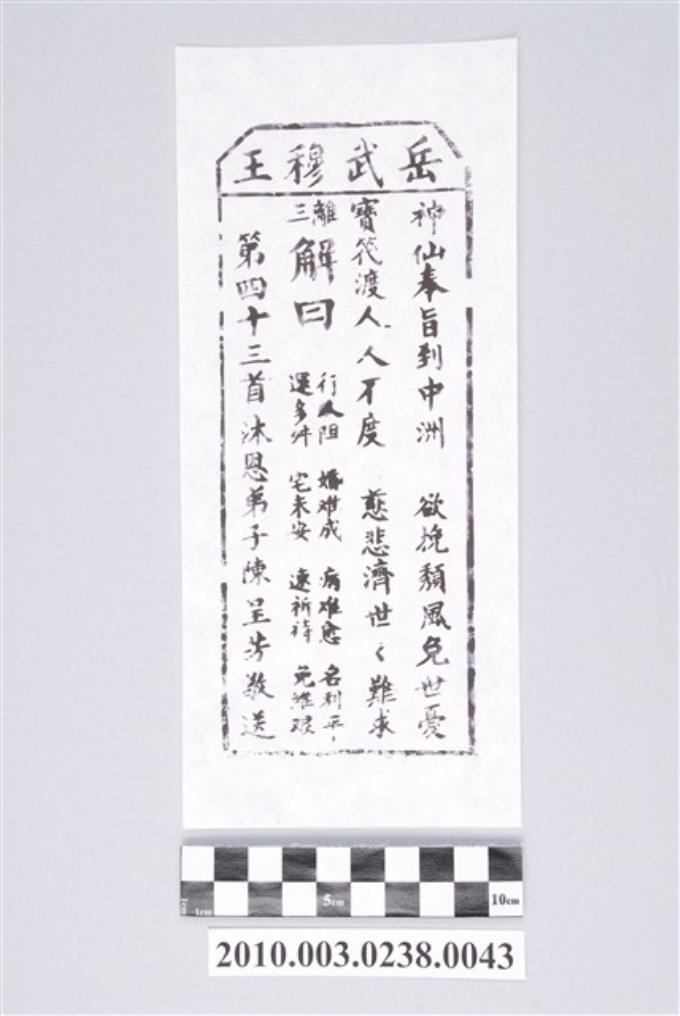 岳武穆王
神仙奉旨到中洲 欲挽頹風免世憂
寶筏渡人人不度 慈悲濟世々難求
離三
解曰
行人阻 婚难成 病难愈 名利平
運多舛 宅未安 速祈禱 免維艰
第四十三首沐恩弟子陳呈芳敬送
1cm 5cm 10cm
2010.003.0238.0043